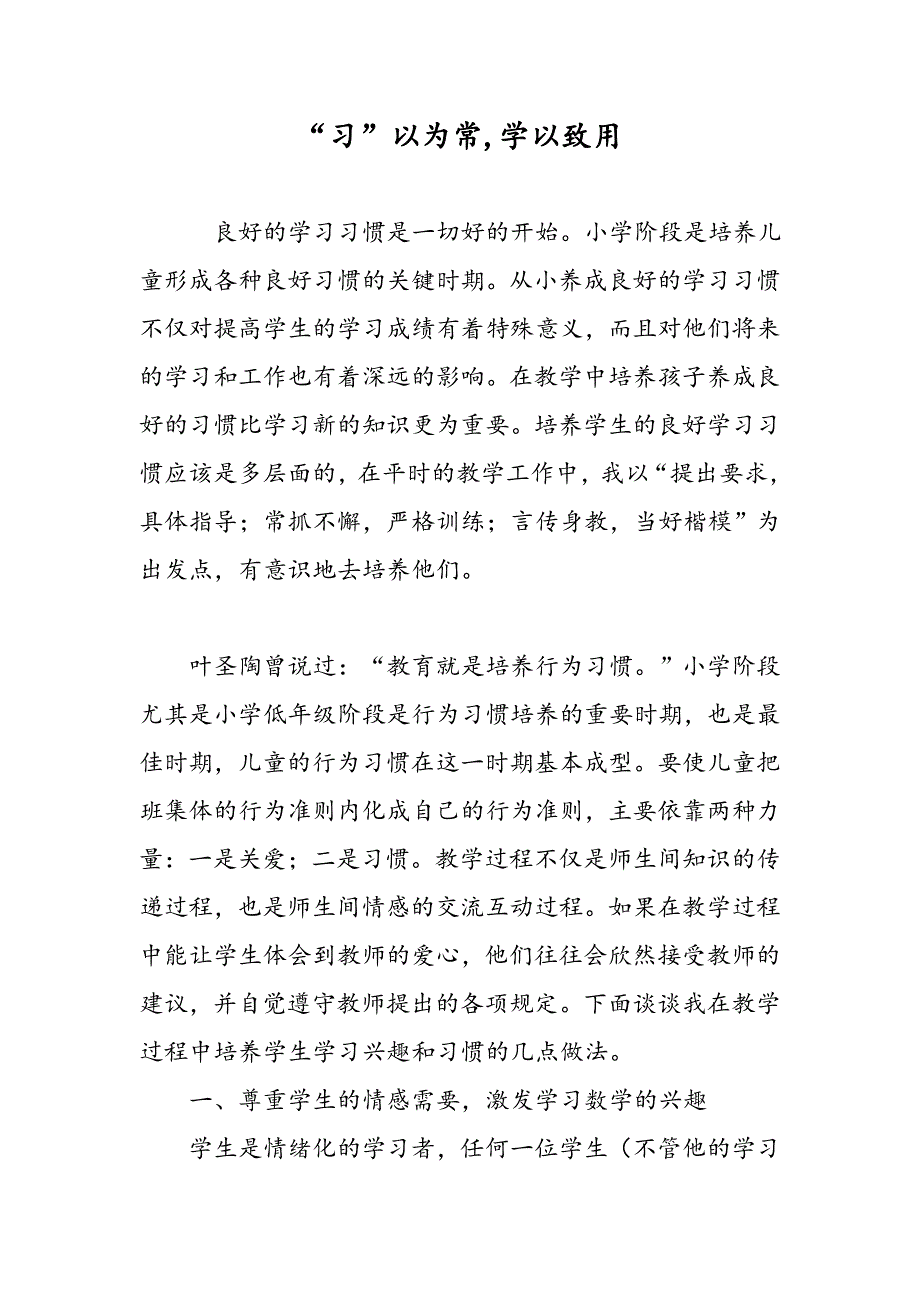 “习”以为常,学以致用
良好的学习习惯是一切好的开始。小学阶段是培养儿
童形成各种良好习惯的关键时期。从小养成良好的学习习惯
不仅对提高学生的学习成绩有着特殊意义，而且对他们将来
的学习和工作也有着深远的影响。在教学中培养孩子养成良
好的习惯比学习新的知识更为重要。培养学生的良好学习习
惯应该是多层面的，在平时的教学工作中，我以“提出要求，
具体指导；常抓不懈，严格训练；言传身教，当好楷模”为
出发点，有意识地去培养他们。
叶圣陶曾说过：“教育就是培养行为习惯。”小学阶段
尤其是小学低年级阶段是行为习惯培养的重要时期，也是最
佳时期，儿童的行为习惯在这一时期基本成型。要使儿童把
班集体的行为准则内化成自己的行为准则，主要依靠两种力
量：一是关爱；二是习惯。教学过程不仅是师生间知识的传
递过程，也是师生间情感的交流互动过程。如果在教学过程
中能让学生体会到教师的爱心，他们往往会欣然接受教师的
建议，并自觉遵守教师提出的各项规定。下面谈谈我在教学
过程中培养学生学习兴趣和习惯的几点做法。
一、尊重学生的情感需要，激发学习数学的兴趣
学生是情绪化的学习者，任何一位学生（不管他的学习